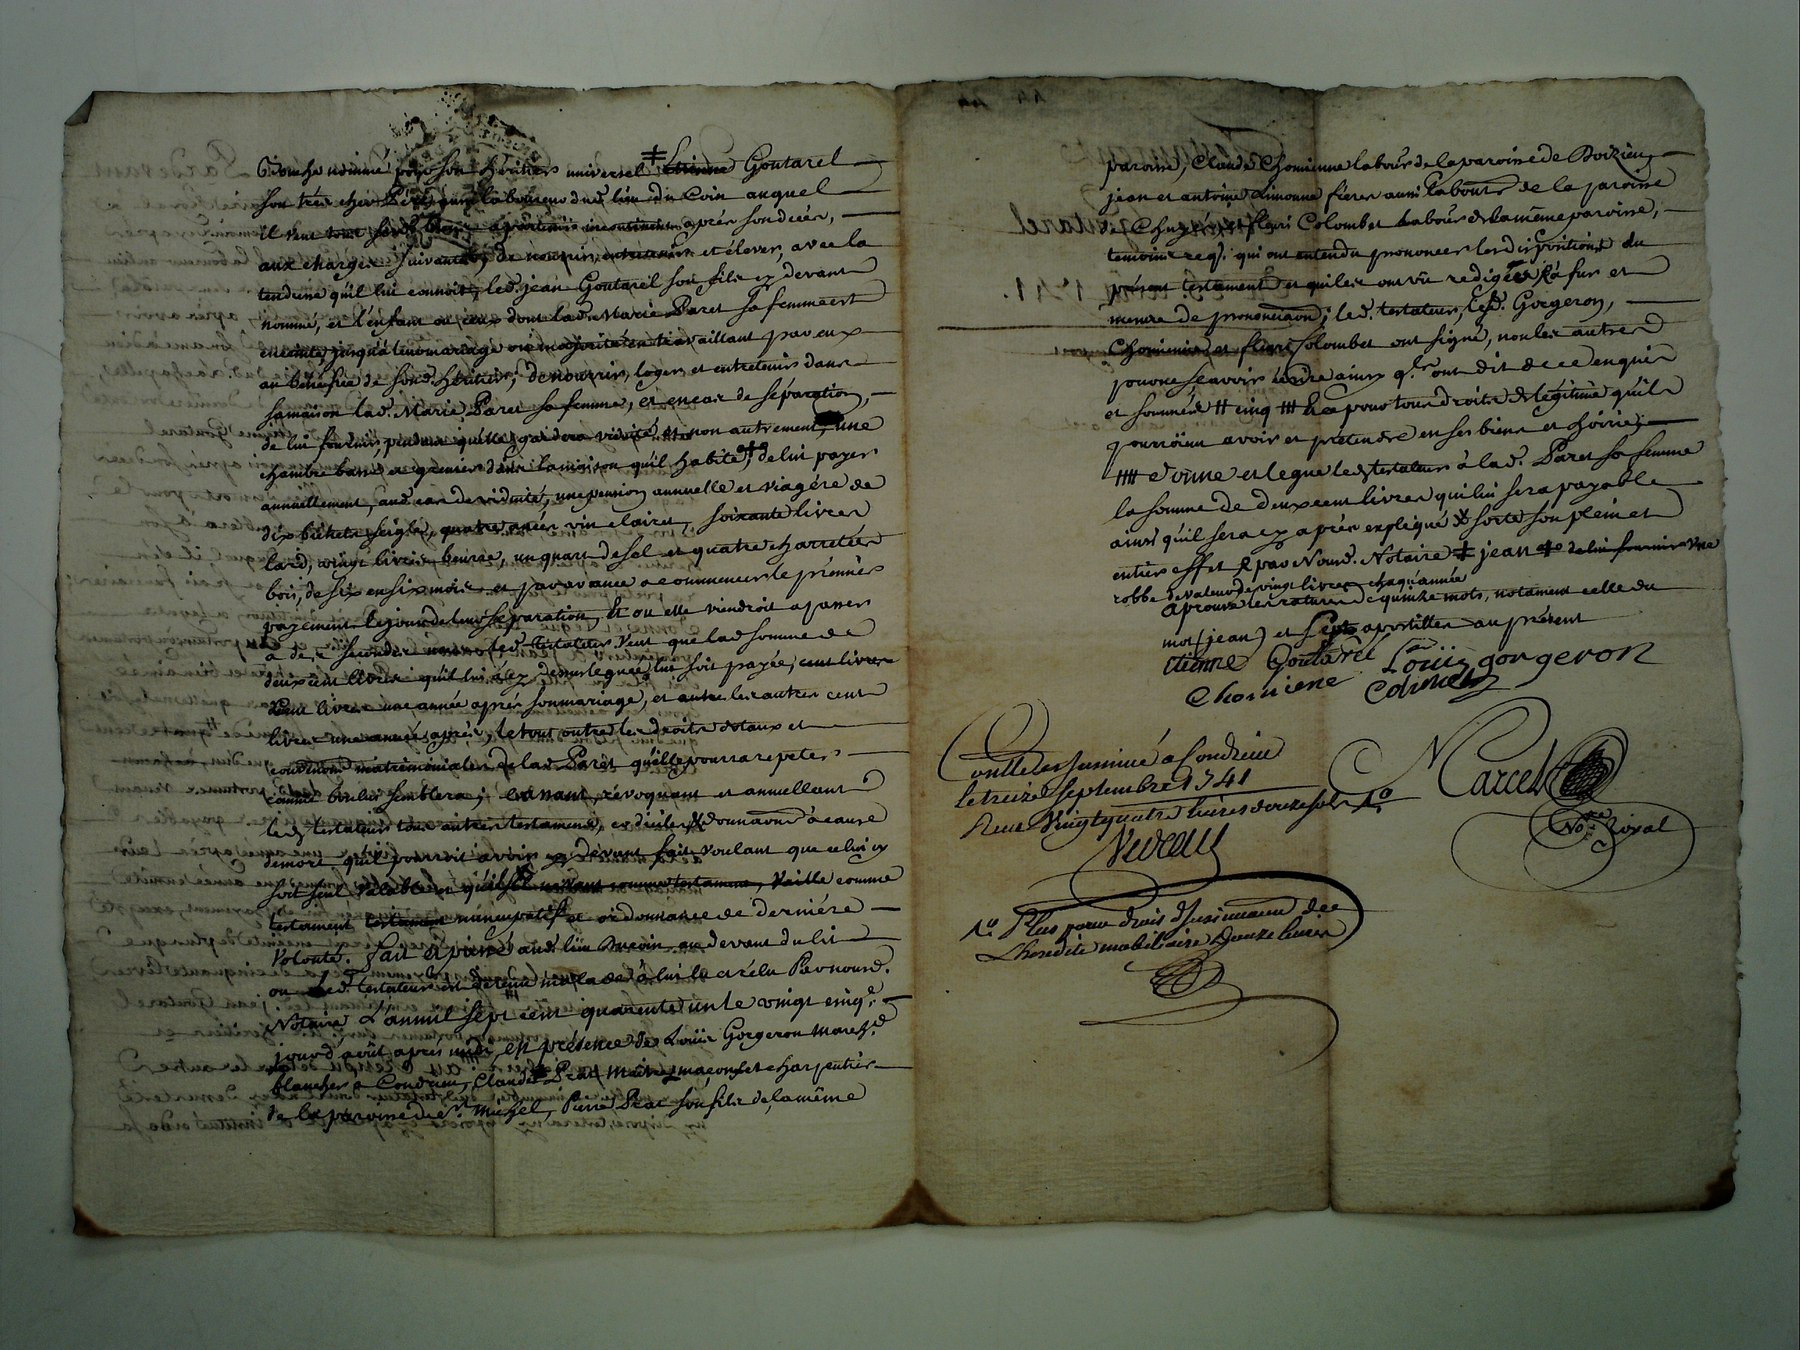 bouche nommé pour son héritier universel ‡ Etienne Goutarel
son très cher Père, aussi laboureur dud. lieu du Coin auquel
il veut tout sesd. biens apartenir incontinent après son decès,
aux charges suivantes, de nourrir, entretenir et élever, avec la
tendresse qu'il lui connoit, led. jean Goutarel son fils cy devant
nommé, et l'enfant ou ceux dont lad. Marie Paret sa femme est
enceinte, jusqu'à leur mariage ou majorité en travaillant par eux
au bénéfice de sond. héritier; de nourrir, loger et entretenir dans
sa maison lad. Marie Paret sa femme, et en cas de séparation,
de lui fournir, pendant qu'elle gardera viduité et non autrement, une
chambre basse et grenier dans la maison qu'il habite, de lui payer
annuellement, aud. cas de viduité, une pension annuelle et viagére de
dix bichets seigle, quatre anées vin clairet, soixante livres
lard, vingt livres beurre, un quart de sel et quatre charretées
bois, de six en six mois et par avance a commencer le premier
payement le jour de leur séparation, et ou elle viendroit a passer
a de secondes led. testateur veut que lad. somme de
deux cent livres qu'il lui a cy dessus leguée lui soit payée, cent livres
cent livres une année après son mariage, et autre les autres cent
livres une année après, le tout outre les droits dotaux et
conditions matrimoniales de lad. Paret qu'elle pourra repeter
comme bon lui semblera; cassant, révoquant et annullant
led. testateur tous autres testaments, codiciles & donnations à cause
de mort qu'il pourroit avoir cy devant fait voulant que celui cy
soit seul valable vaille comme
testament nuncupatif et ordonnance de derniére
volonté. Fait et passé aud. lieu Ducoin au devant du lit
ou led. testateur est detenu malade à lui lu et rélu Par nousd.
Notaire L'an mil sept cent quarente un le vingt cinq.e
jour d'août après midi, en présence de Louis Gorgeron march.d
blancher a Condrieu, Claude Prat maitre maçon et charpentier
de la paroisse de St. Michel, Pierre Prat son fils de la même
paroisse, Claude Chomienne labour. de la paroisse de Doizieu,
jean et antoine frères aussi labours de la paroisse
de et fleuri Colombet labour de la même paroisse,
temoins req.s qui ont entendu prononcer les dispositions du
présent testament et qui les ont vû redigées à fur et
mesure de prononciation; led. testateur, led. Gorgeron,
Chomienne et fleuri Colombet ont signé, non les autres
pour ne sçavoir écrire ainsy q.s ont dit de ce enquis
et sommés # cinq #### pour tous droits de légitime qu'ils
pourroient avoir et prétendre en ses biens et hoirie;
#### donne et legue led. testateur à lad. Paret sa femme
la somme de deux cent livres qui lui sera payable
ainsi qu'il sera cy après expliqué sorte son plein et
entier effet & par Nousd. Notaire ‡ jean de lui fournir une
robbe de valeur de vingt livres chaqu'année
aprouvé les ratures de quinze mots, notament celle du
mot (jean) et sept apostilles au présent
etienne Goutarel Louis gorgeron
Chomiene Colombet
Marcel
No.re Royal
Contlé et insinué a Condrieu
le treize septembre 1741
Receu Vingt quatre livres douze sols 1.º
1.º Plus pour droit d'Insinuaon de
L'heredité mobiliaire Douze livres